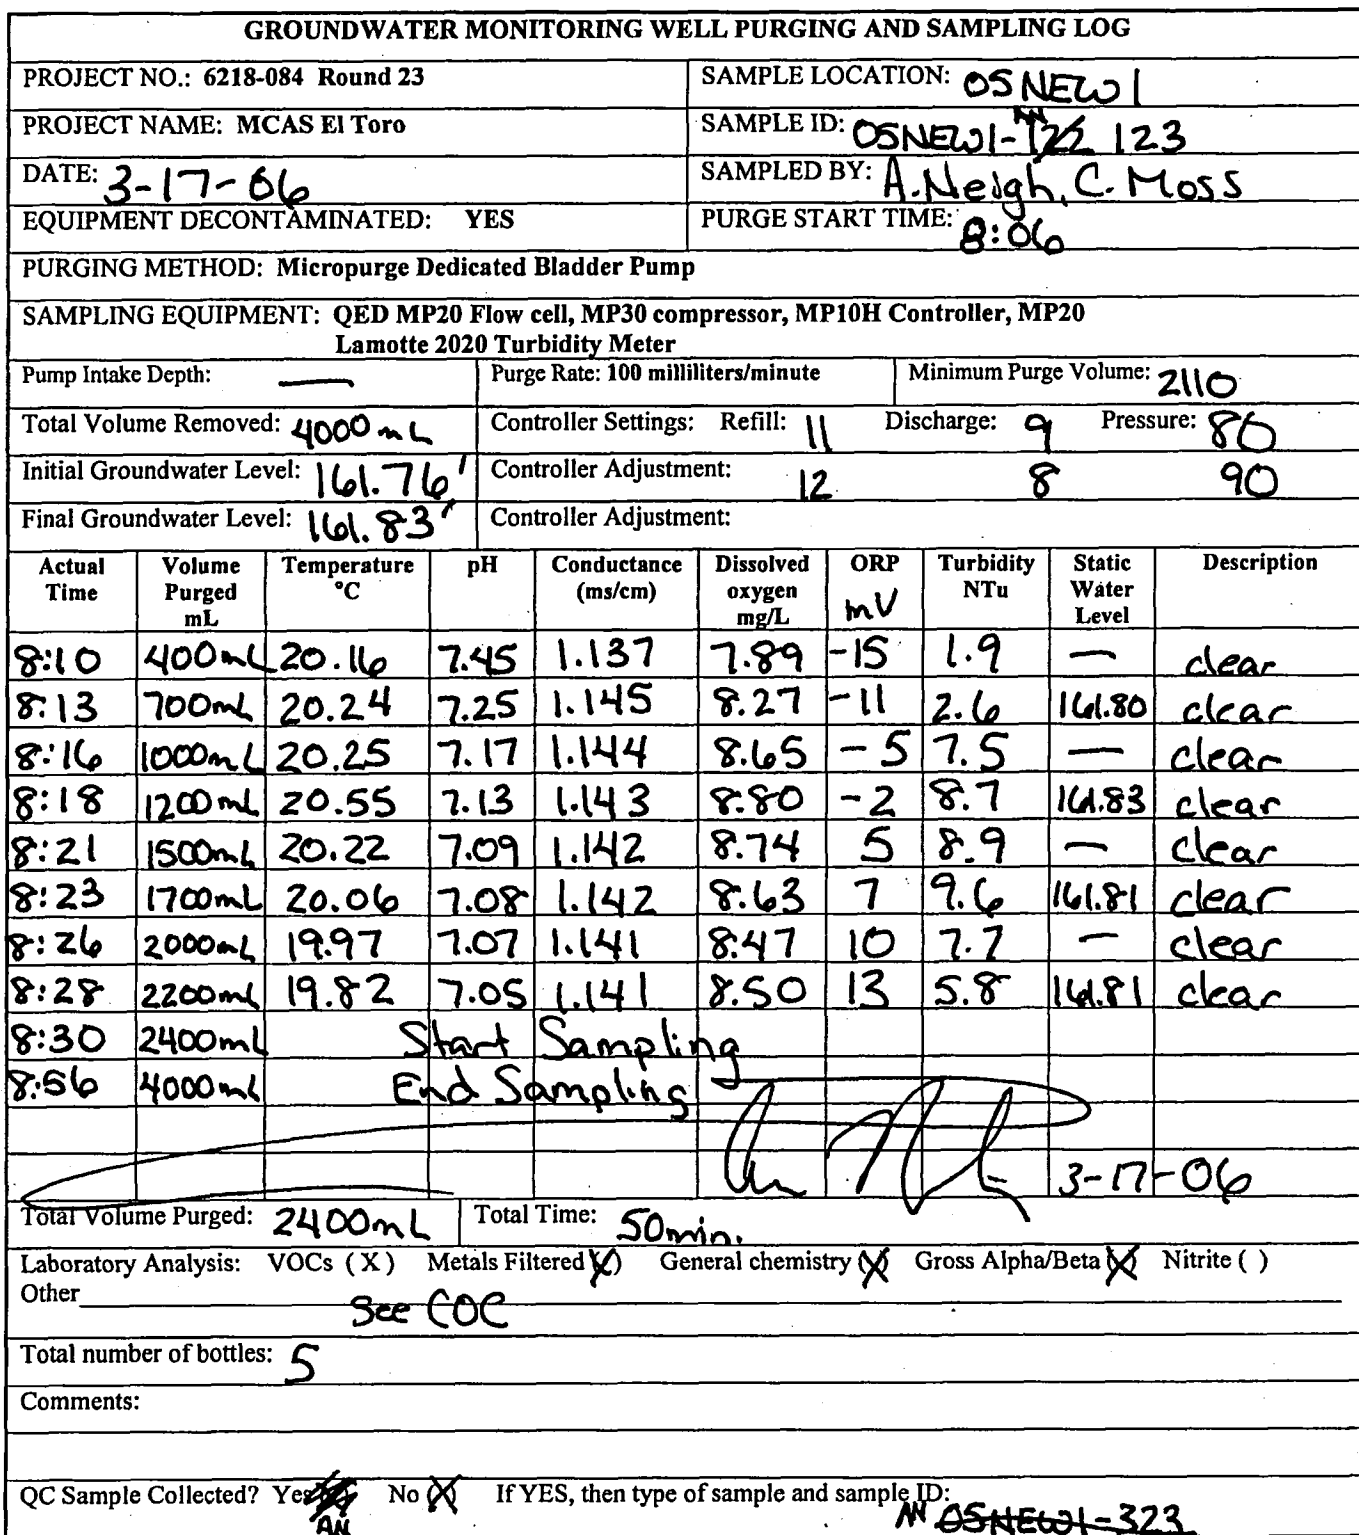 GROUNDWATER MONITORING WELL PURGING AND SAMPLING LOG
PROJECT NO.: 6218-084 Round 23 SAMPLE LOCATION: OSNEW1
PROJECT NAME: MCAS El Toro SAMPLE ID: OSNEW1-122 123
AN
DATE: 3-17-06 SAMPLED BY: A.Neigh, C. Moss
EQUIPMENT DECONTAMINATED: YES PURGE START TIME: 8:06
PURGING METHOD: Micropurge Dedicated Bladder Pump
SAMPLING EQUIPMENT: QED MP20 Flow cell, MP30 compressor, MP10H Controller, MP20
Lamotte 2020 Turbidity Meter
Pump Intake Depth: — Purge Rate: 100 milliliters/minute Minimum Purge Volume: 2110
Total Volume Removed: 4000 mL Controller Settings: Refill: 11 Discharge: 9 Pressure: 80
Initial Groundwater Level: 161.76' Controller Adjustment: 12 8 90
Final Groundwater Level: 161.83' Controller Adjustment:
Actual Time Volume Purged mL Temperature °C pH Conductance (ms/cm) Dissolved oxygen mg/L ORP mV Turbidity NTu Static Water Level Description
8:10 400mL 20.16 7.45 1.137 7.89 -15 1.9 — clear
8:13 700mL 20.24 7.25 1.145 8.27 -11 2.6 161.80 clear
8:16 1000mL 20.25 7.17 1.144 8.65 -5 7.5 — clear
8:18 1200mL 20.55 7.13 1.143 8.80 -2 8.7 161.83 clear
8:21 1500mL 20.22 7.09 1.142 8.74 5 8.9 — clear
8:23 1700mL 20.06 7.08 1.142 8.63 7 9.6 161.81 clear
8:26 2000mL 19.97 7.07 1.141 8.47 10 7.7 — clear
8:28 2200mL 19.82 7.05 1.141 8.50 13 5.8 161.81 clear
8:30 2400mL Start Sampling
8:56 4000mL End Sampling
3-17-06
Total Volume Purged: 2400mL Total Time: 50min.
Laboratory Analysis: VOCs (X) Metals Filtered (X) General chemistry (X) Gross Alpha/Beta (X) Nitrite ( )
Other See COC
Total number of bottles: 5
Comments:
QC Sample Collected? Yes No (X) If YES, then type of sample and sample ID:
AN AN OSNEW1-323